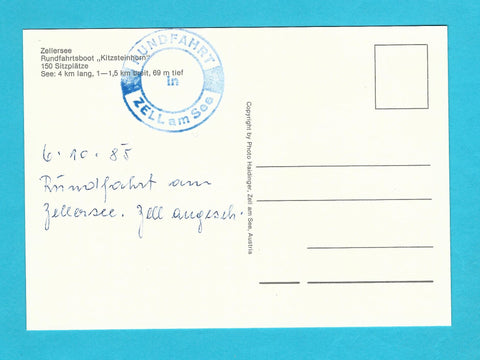 Zellersee
Rundfahrtsboot „Kitzsteinhorn"
150 Sitzplätze
See: 4 km lang, 1—1,5 km breit, 69 m tief
RUNDFAHRT
in
ZELL am See
6.10.85
Rundfahrt am
Zellersee. Zell angesch.
Copyright by Photo Haidinger, Zell am See, Austria